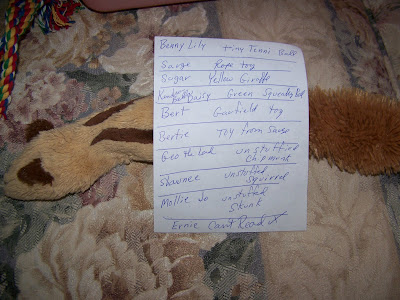 Benny Lily tiny Tenni Ball
Sarge Rope toy
Sugar Yellow Giraffe
Daisy Green Squeaky
Bert Garfield toy
Bertie Toy from Sarge
Geo the Lad unstuffied
Chipment
Shawnee unstuffed
Squirrel
Mollie Jo unstuffed
Skunk
Ernie Cant Read